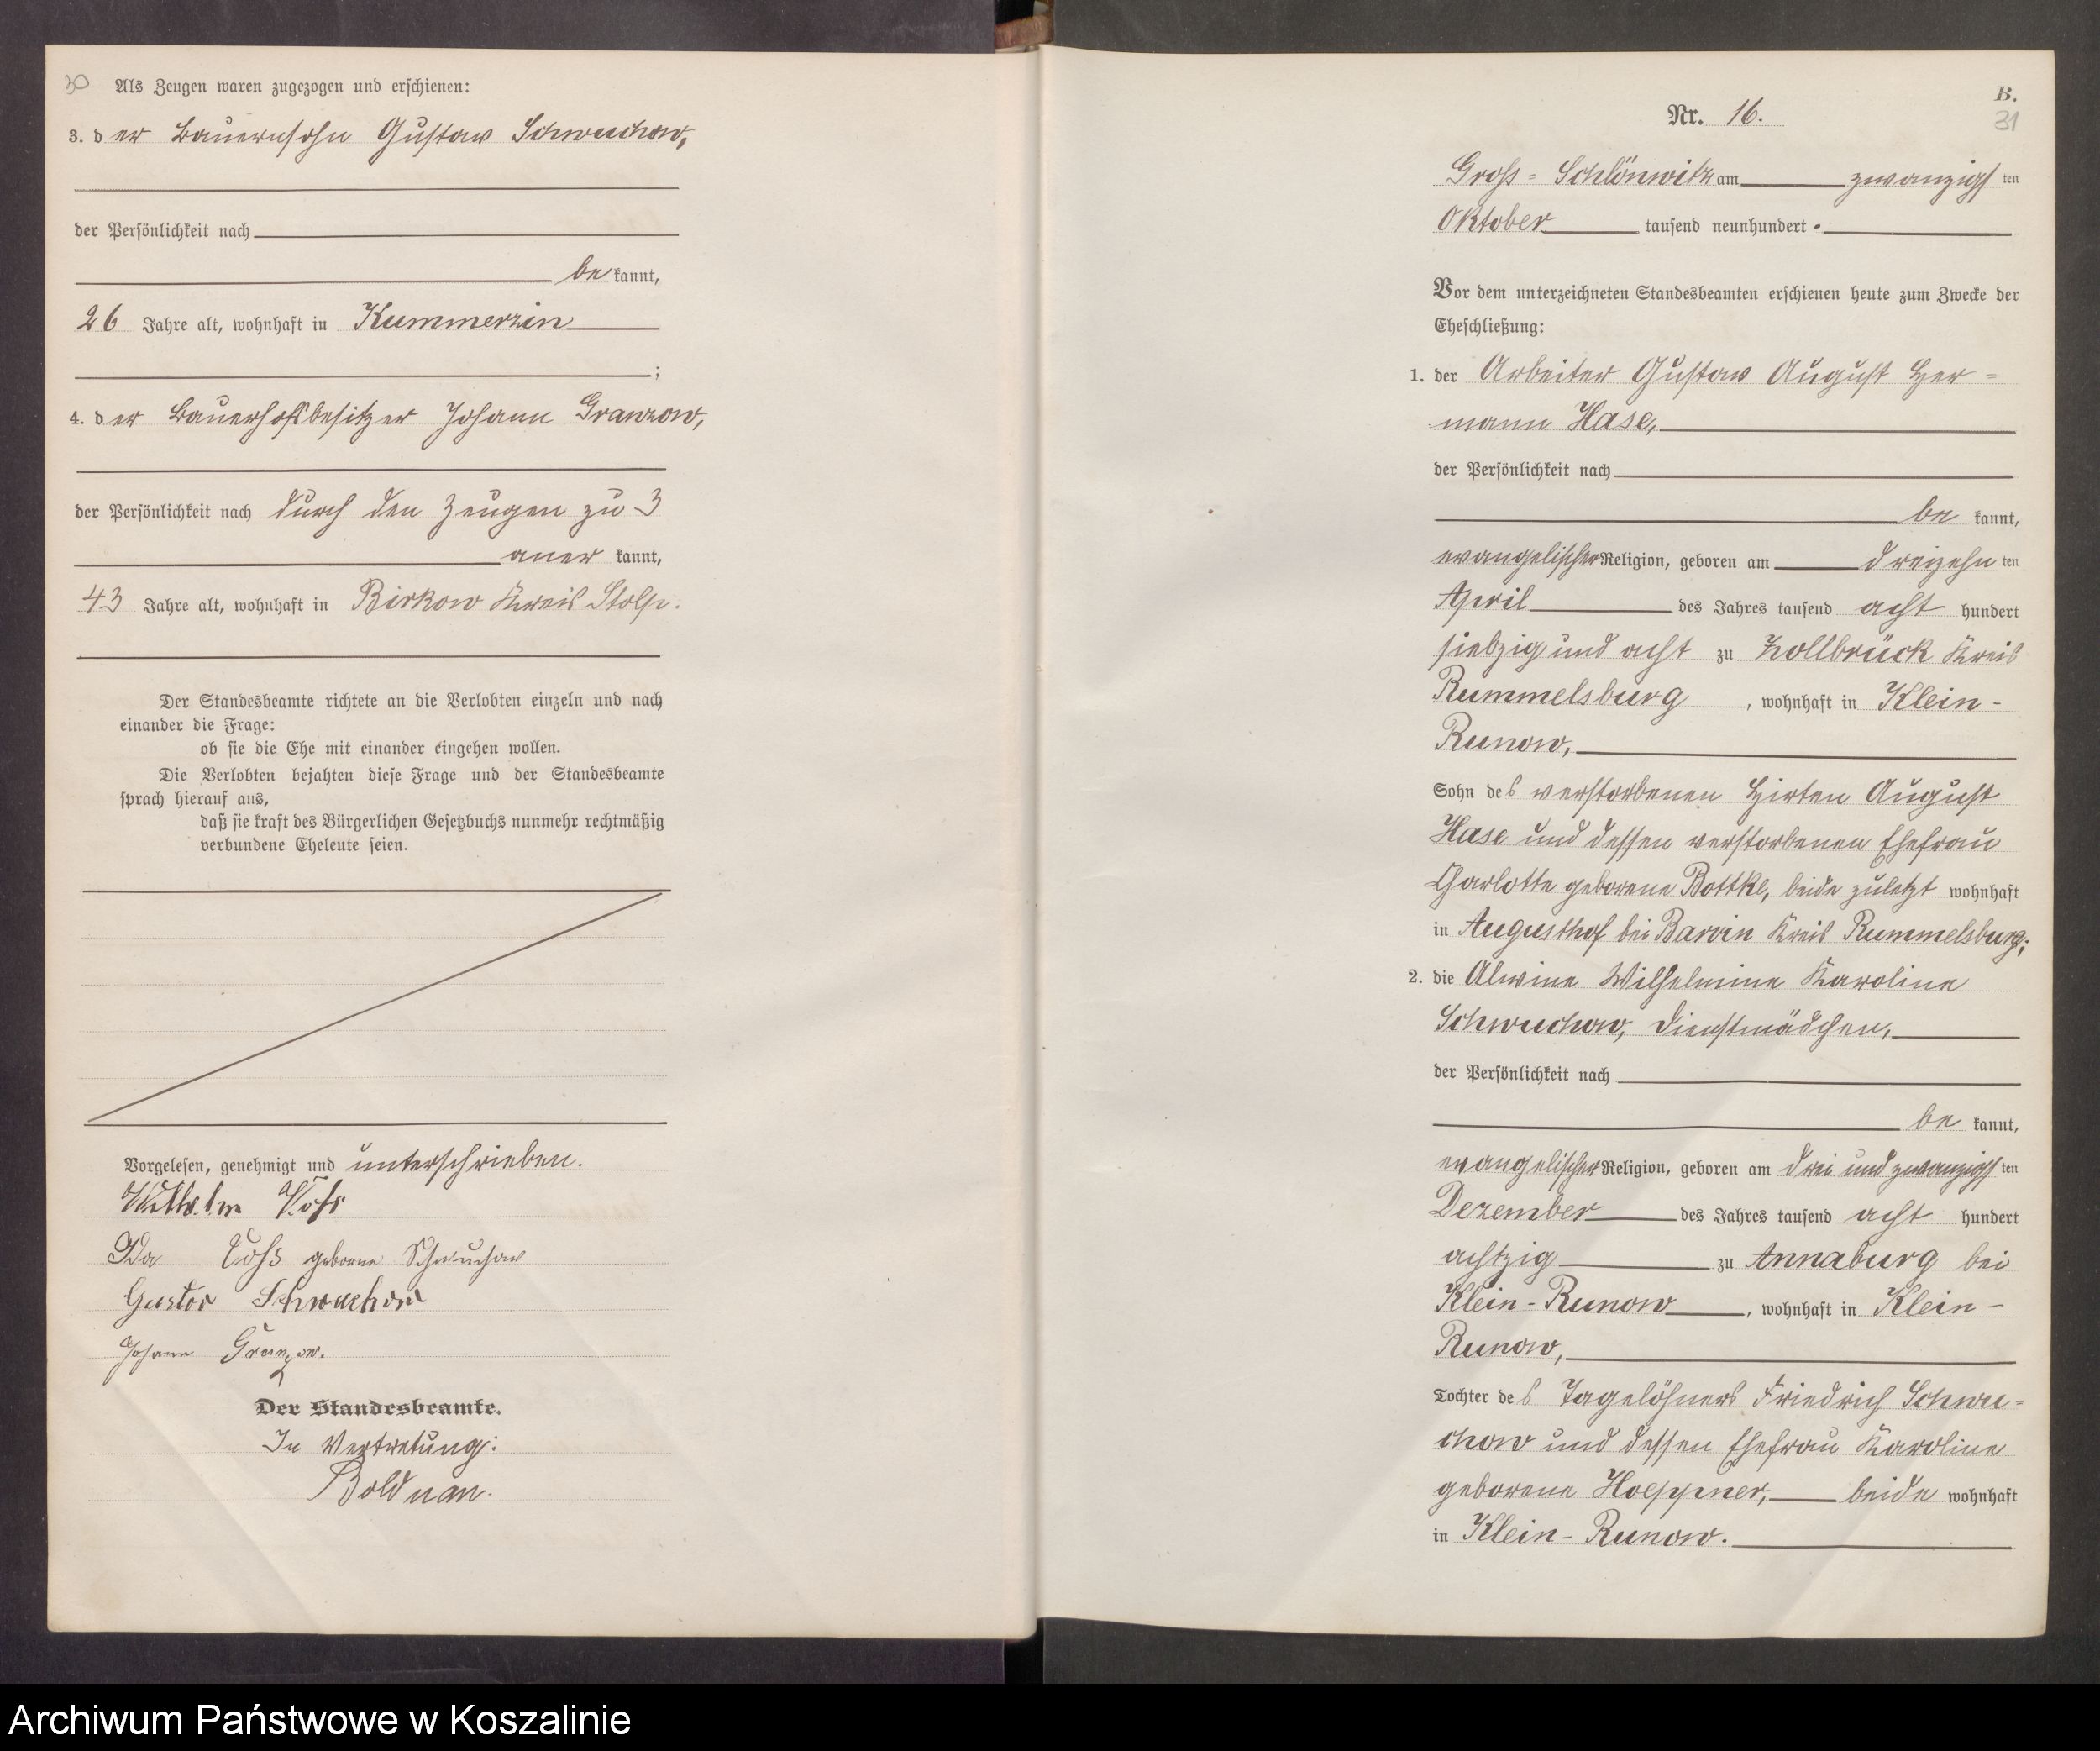 30
Als Zeugen waren zugezogen und erschienen:
3. der Bauernsohn Gustav Schwuchow,
der Persönlichkeit nach
bekannt,
26 Jahre alt, wohnhaft in Kummerzin
;
4. der Bauerhofsbesitzer Johann Granzow,
der Persönlichkeit nach durch den Zeugen zu 3
anerkannt,
43 Jahre alt, wohnhaft in Birkow Kreis Stolp.
Der Standesbeamte richtete an die Verlobten einzeln und nach
einander die Frage:
ob sie die Ehe mit einander eingehen wollen.
Die Verlobten bejahten diese Frage und der Standesbeamte
sprach hierauf aus,
daß sie kraft des Bürgerlichen Gesetzbuchs nunmehr rechtmäßig
verbundene Eheleute seien.
Vorgelesen, genehmigt und unterschrieben.
Wilhelm Voß
Ida Voß geborene Schwuchow
Gustav Schwuchow
Johann Granzow.
Der Standesbeamte.
In Vertretung:
Bolduan.
B.
Nr. 16.
31
Groß-Schlönwitz am zwanzigsten
Oktober tausend neunhundert
Vor dem unterzeichneten Standesbeamten erschienen heute zum Zwecke der
Eheschließung:
1. der Arbeiter Gustav August Her=
mann Hase,
der Persönlichkeit nach
bekannt,
evangelischer Religion, geboren am dreizehnten
April des Jahres tausend acht hundert
siebzig und acht zu Zollbrück Kreis
Rummelsburg, wohnhaft in Klein-
Runow,
Sohn des verstorbenen Hirten August
Hase und dessen verstorbenen Ehefrau
Charlotte geborene Bottke, beide zuletzt wohnhaft
in Augusthof bei Barvin Kreis Rummelsburg;
2. die Alwine Wilhelmine Karoline
Schwuchow, Dienstmädchen,
der Persönlichkeit nach
bekannt,
evangelischer Religion, geboren am drei und zwanzigsten
Dezember des Jahres tausend acht hundert
achtzig zu Annaburg bei
Klein-Runow, wohnhaft in Klein-
Runow,
Tochter des Tagelöhners Friedrich Schwu=
chow und dessen Ehefrau Karoline
geborene Hoeppner, beide wohnhaft
in Klein-Runow.
Archiwum Państwowe w Koszalinie